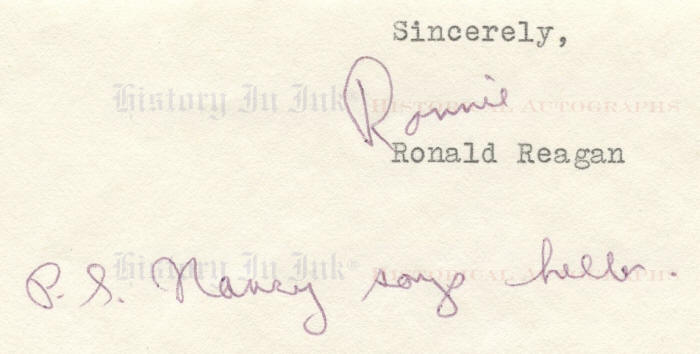 Sincerely,
History In Ink® HISTORICAL AUTOGRAPHS
Ronnie
Ronald Reagan
History In Ink® HISTORICAL AUTOGRAPHS
P.S. Nancy says hello.